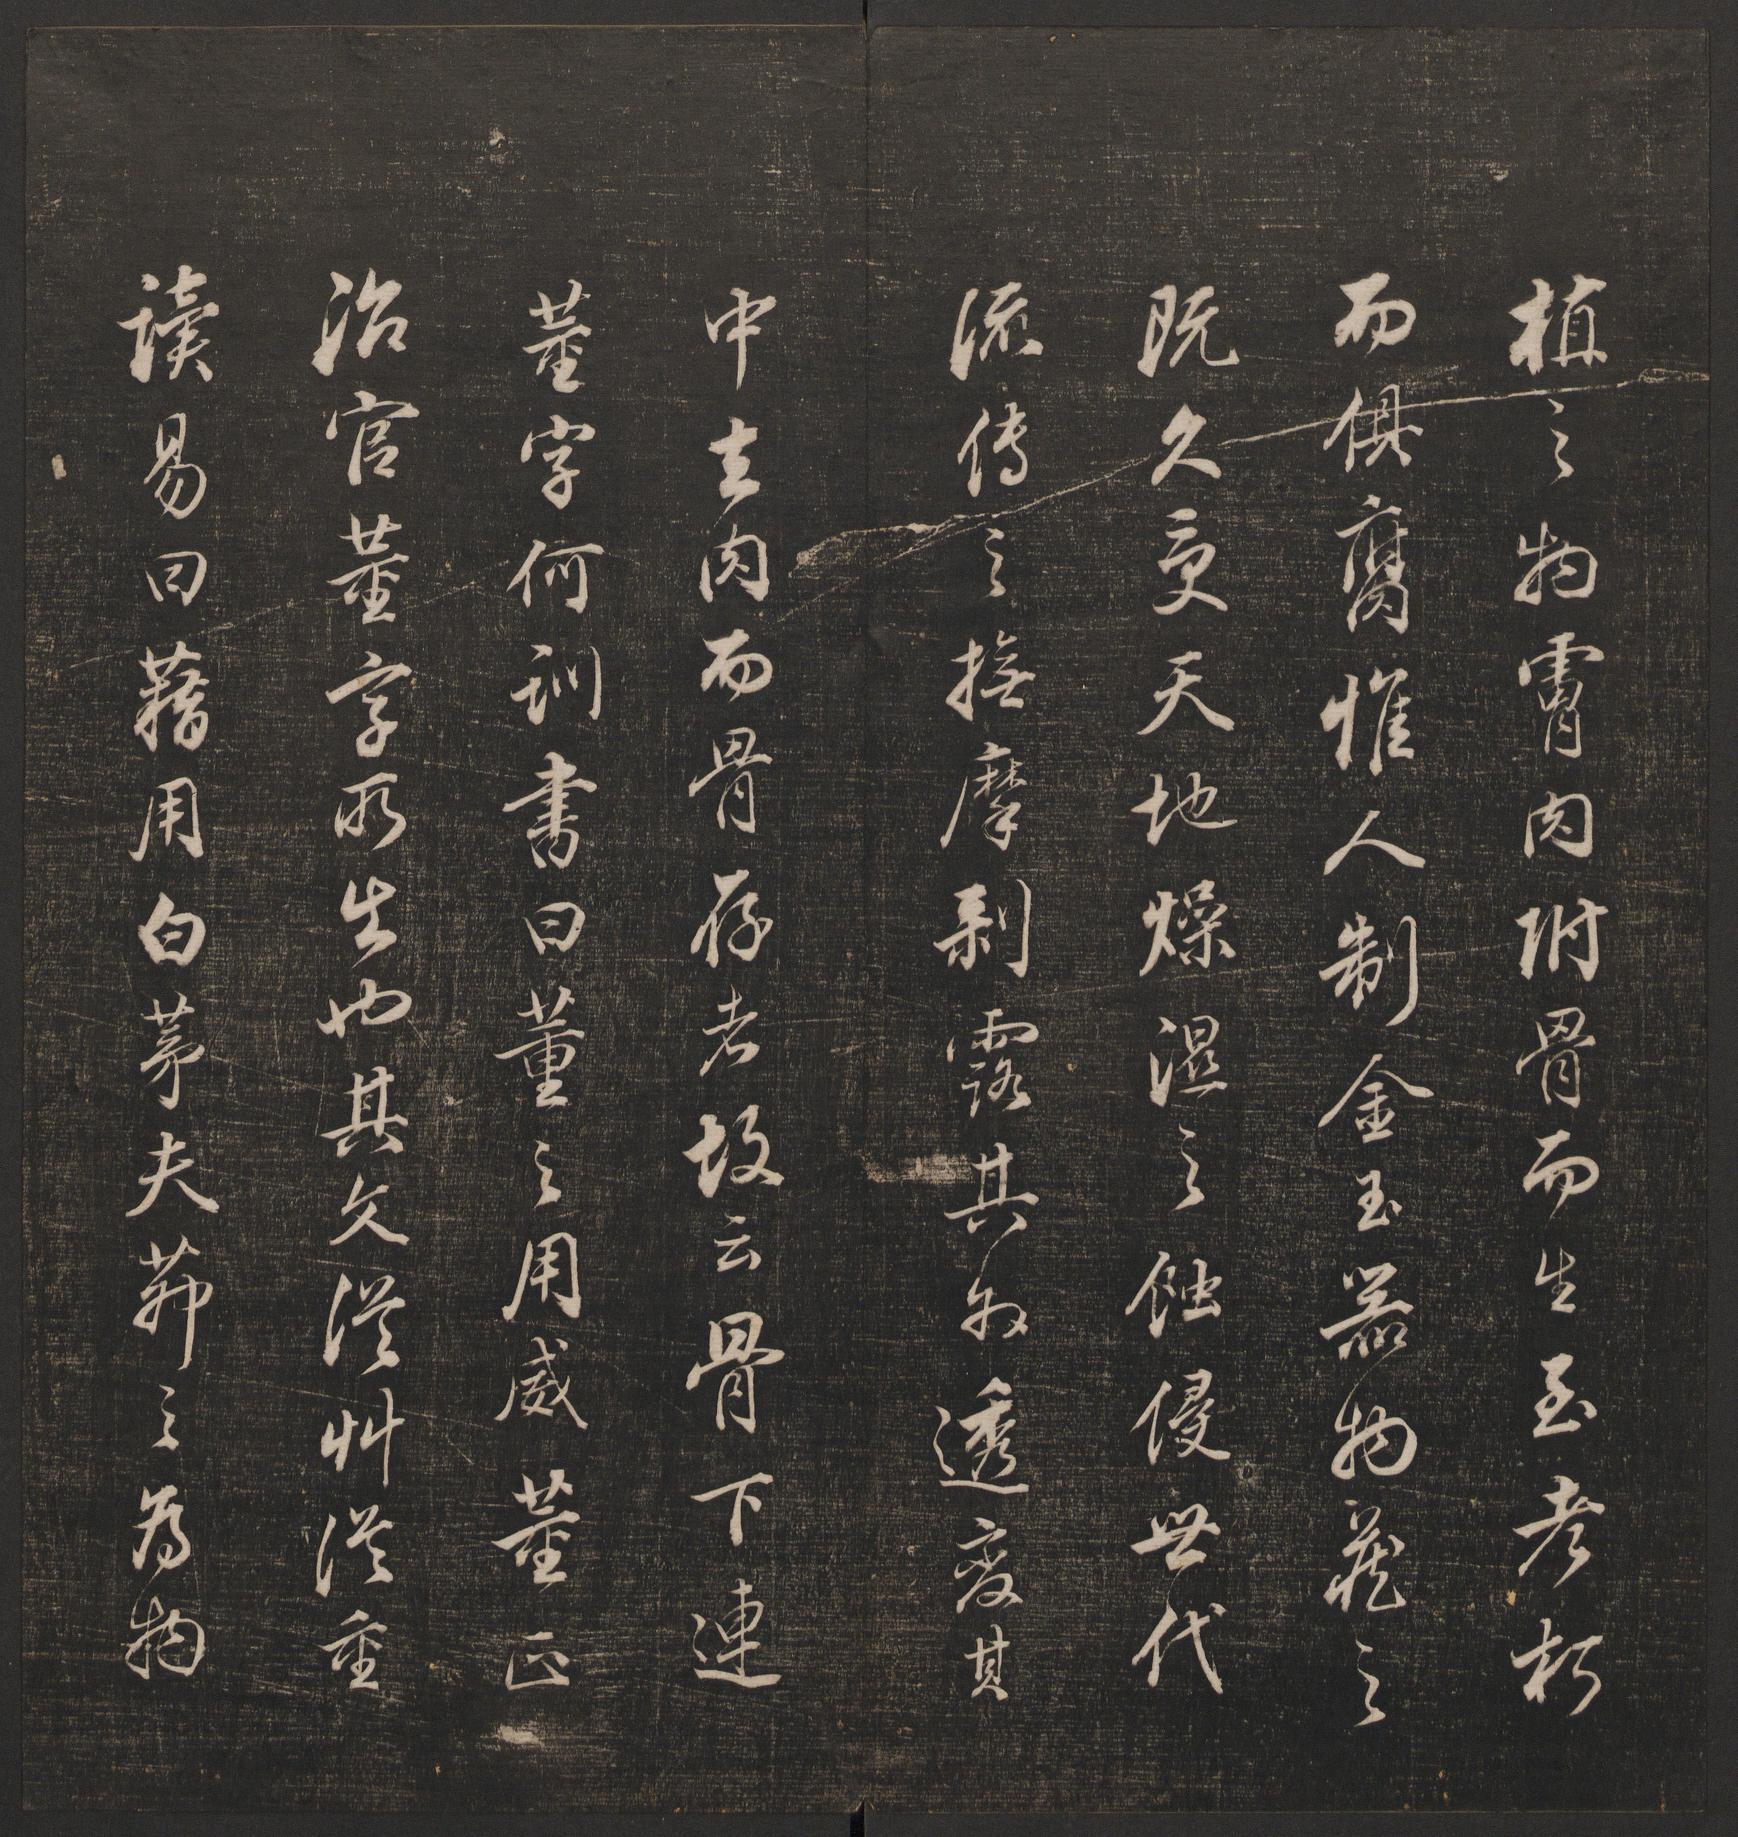 植之物胥肉附骨而生至老朽
而俱腐惟人制金玉器物藏之
既久受天地燥濕之蝕侵世代
流傳之撫摩剝露其外透變其
中去肉而骨存者故云骨下連
董字何訓書曰董之用威董正
治官董字所出也其文從艸從重
讀易曰藉用白茅夫茅之為物